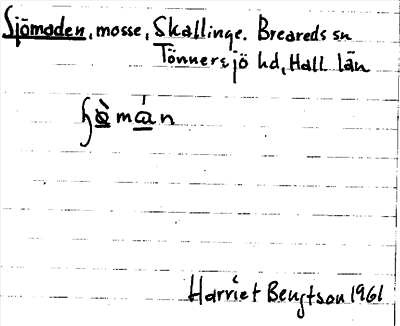 Sjömaden, mosse, Skallinge. Breareds sn
Tönnersjö hd, Hall län
Harriet Bengtson 1961